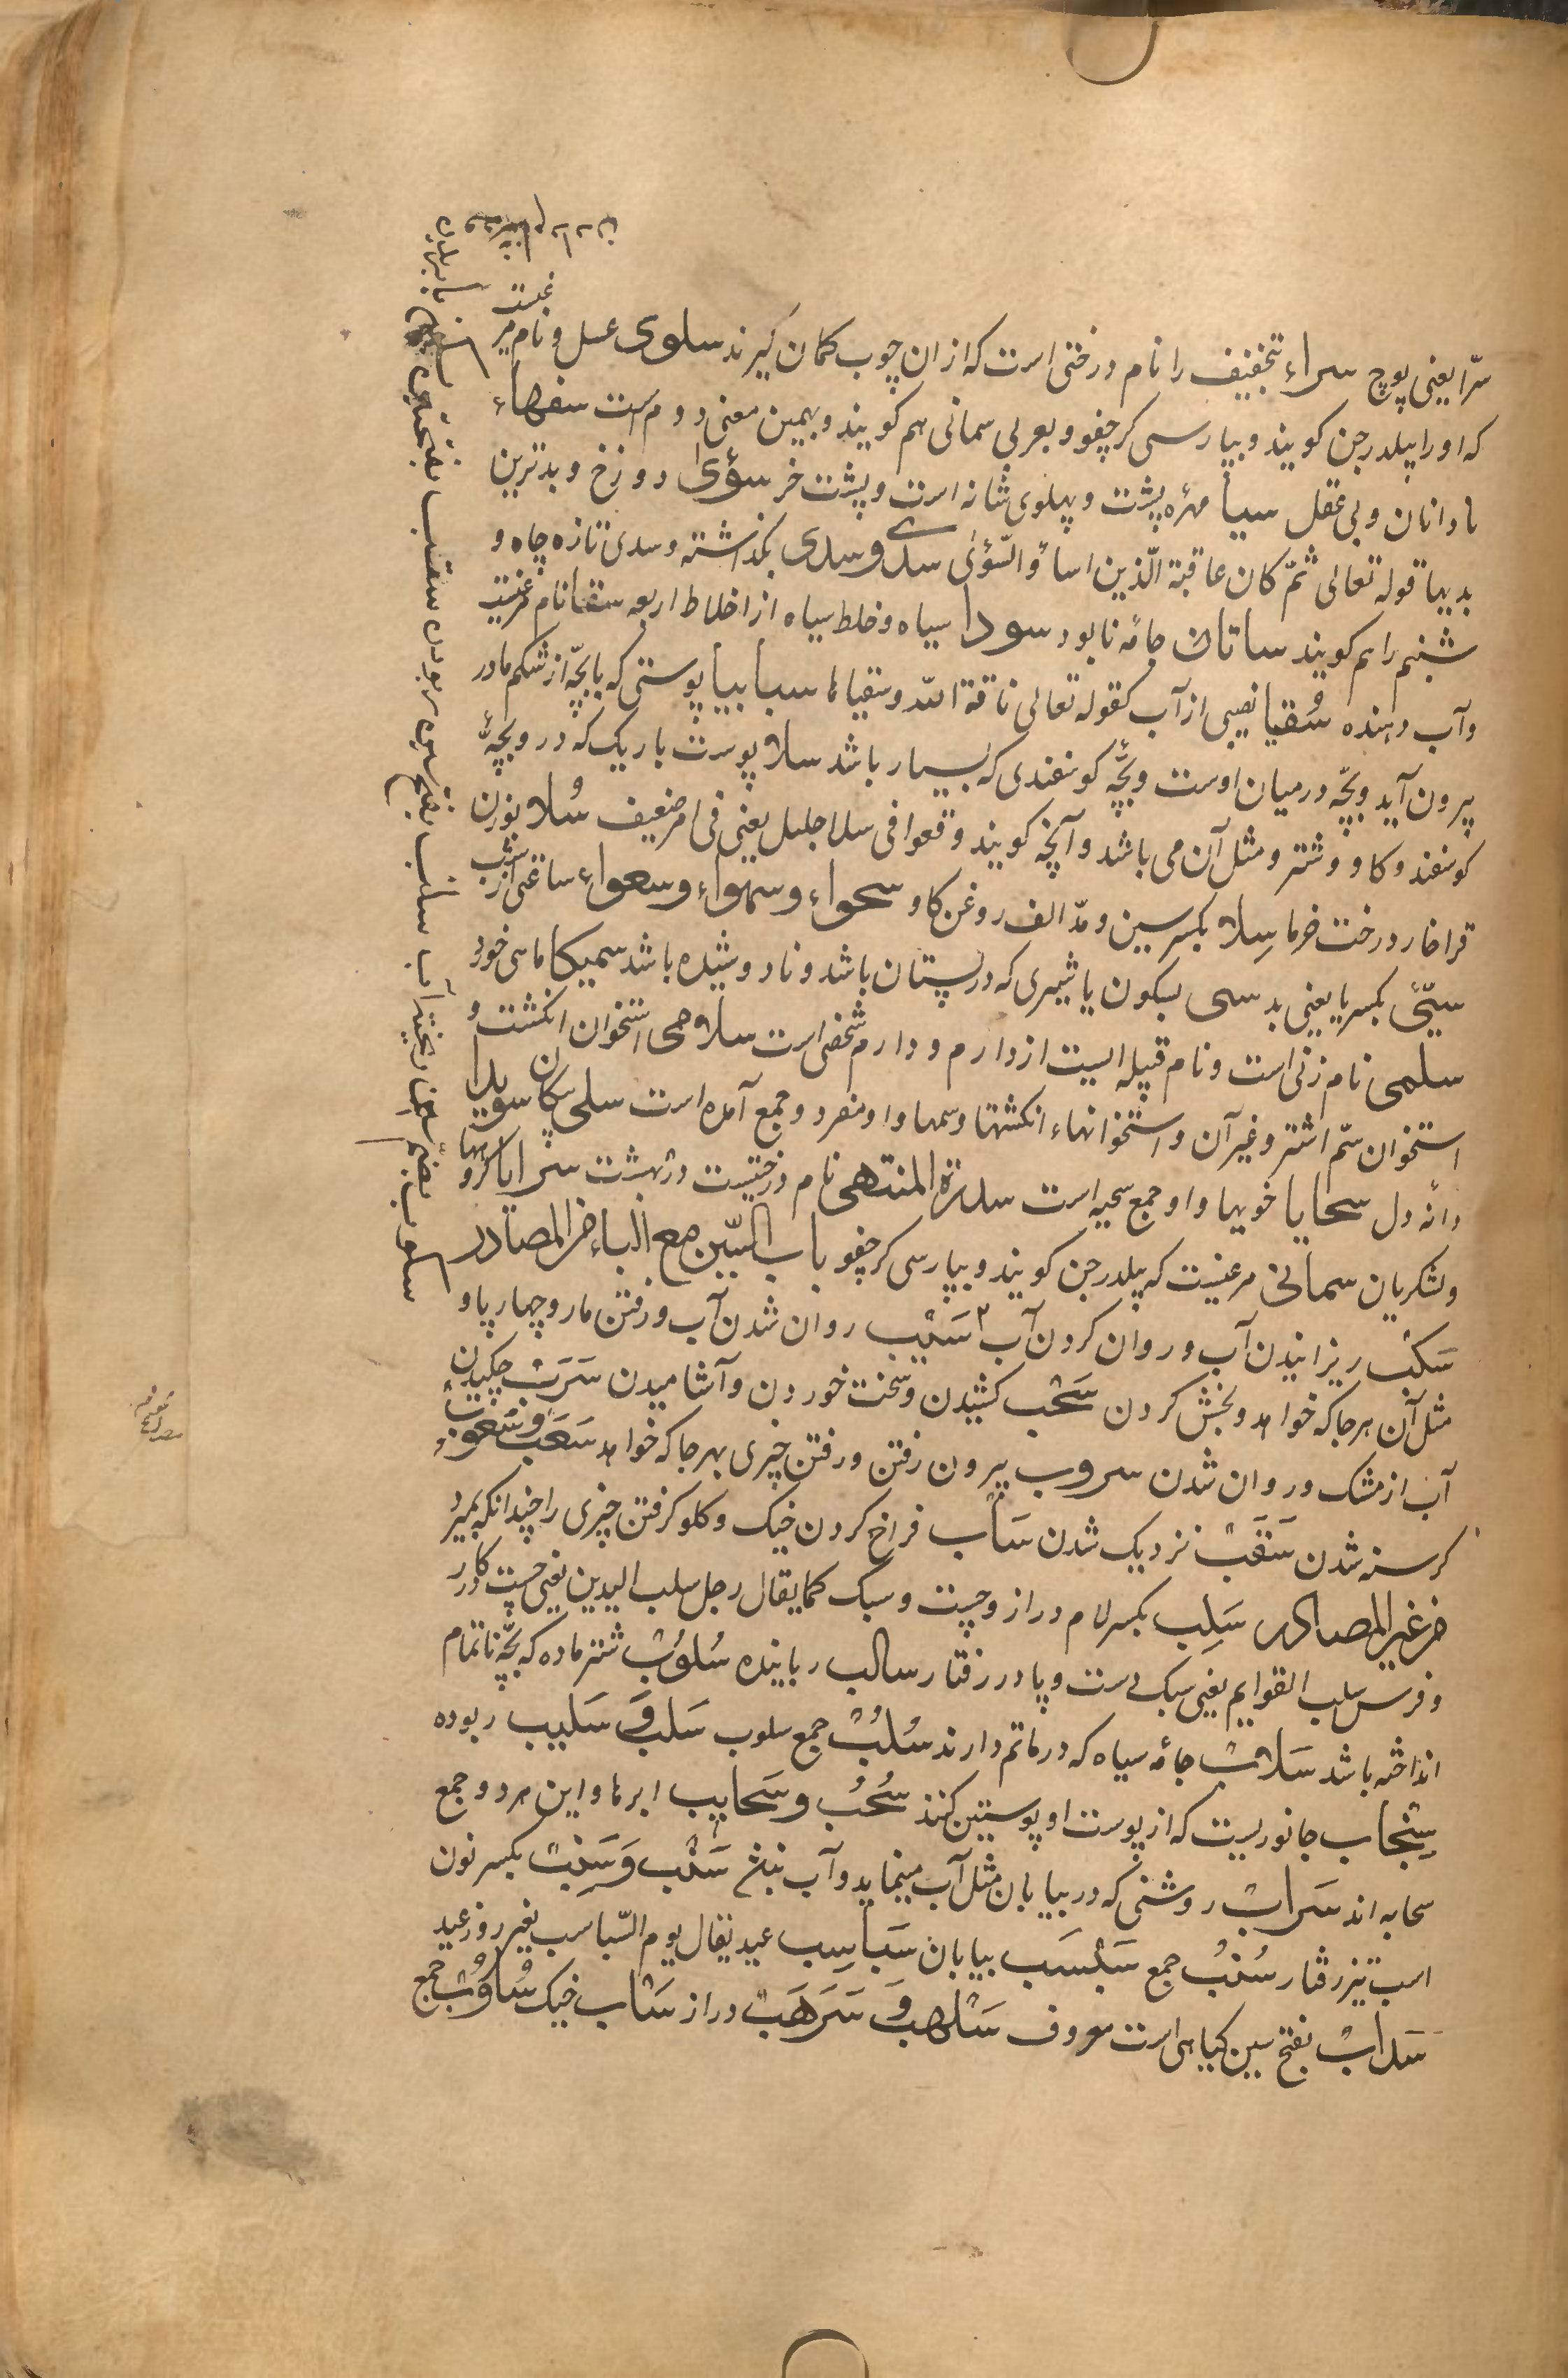 سرّا یعنی پوچ سراء بتخفیف را نام درختی است که از ان چوب کمان گیرند سلوی عسل و نام مرغیست
که او را پیلدرجن کویند و بپارسی کرچفو و بعربی سمانی هم کویند و بهمین معنی دوم است سفهاء
نادانان و بی عقل سیبا مهره پشت و پهلوی شانه است و پشت خر سؤی دوزخ و بدترین
بدیها قوله تعالی ثمّ کان عاقبة الّذین اساؤ السّؤی سدی و سدی بگذاشته و سدی تازه چاه و
شبنم را هم کویند ساتان جامه نابود سودا سیاه و خلط سیاه از اخلاط اربعه سقا نام مرغیست
و آب دهنده سُقیا نصیبی از آب کقوله تعالی ناقة الله و سقیاها سبابیا پوستی که با بچّه از شکم مادر
بیرون آید و بچّه در میان اوست و بچّه کوسفندی که بسیار باشد سلا پوست باریک که در و بچّهٔ
کوسفند و کاو و شتر و مثل آن می باشد و آنچه کویند وقعوا فی سلا جلیل یعنی فی امر ضعیف سُلا بوزن
قرا خار درخت خرما سِلا بکسر سین و مدّ الف روغن کاو سحواء و سهواء و سعواء ساعتی از شب
سیّئ بکسر یا یعنی بد سی بسکون یا شیری که در پستان باشد و نادوشیده باشد سمیکا ماهی خورد
سلمی نام زنی است و نام قبیله ایست از دارم و دارم شخصی است سلامی استخوان انکشت و
استخوان سّم اشتر و غیر آن و استخوانهاء انکشتها و سمها و او مفرد و جمع آمده است سلی سکان سویدا
دانه دل سجایا خویها و او جمع سجیه است سدرة المنتهی نام درختیست در بهشت سرایا کروهها
و لشکریان سمانی مرغیست که پیلدرجن کویند و بپارسی کرچفو باب السّین مع الباء من المصادر
سَکْب ریزانیدن آب و روان کردن آب سَیْب روان شدن آب و رفتن مار و چهارپا و
مثل آن هر جا که خواهد و بخش کردن سَحْب کشیدن و سخت خوردن و آشامیدن سَرَبْ چکیدن
آب از مشک و روان شدن سروب بیرون رفتن و رفتن چیزی بهر جا که خواهد سَغَب و سُغوبْ
کرسنه شدن سَقَبْ نزدیک شدن سَأب فراخ کردن خیک و کلو کرفتن چیزی را چندانکه بمیرد
من غیر المصادر سَلِب بکسر لام دراز و چست و سبک کما یقال رجل سلب الیدین یعنی چست کار
و فرس سلب القوایم یعنی سبک دست و پا در رفتار سالب رباینده سُلوُبْ شتر ماده که بچّه ناتمام
انداخته باشد سَلابْ جامهٔ سیاه که در ماتم دارند سُلُبْ جمع سلوب سَلَب وَ سَلیب ربوده
سِنْجاب جانوریست که از پوست او پوستین کنند سُحُبْ و سَحایب ابرها و این هر دو جمع
سحابه اند سَرابْ روشنی که در بیابان مثل آب مینماید و آب نباشد سَنْب وَ سَنِبْ بکسر نون
اسب تیز رفتار سُنُبْ جمع سَبْسَب بیابان سَباسِب عید یقال یوم السّباسب یعنی روز عید
سَدابْ بفتح سین کیاهی است معروف سَلْهَب وَ سَرَهَبْ دراز سَأب خیک سُاؤُبْ جمع